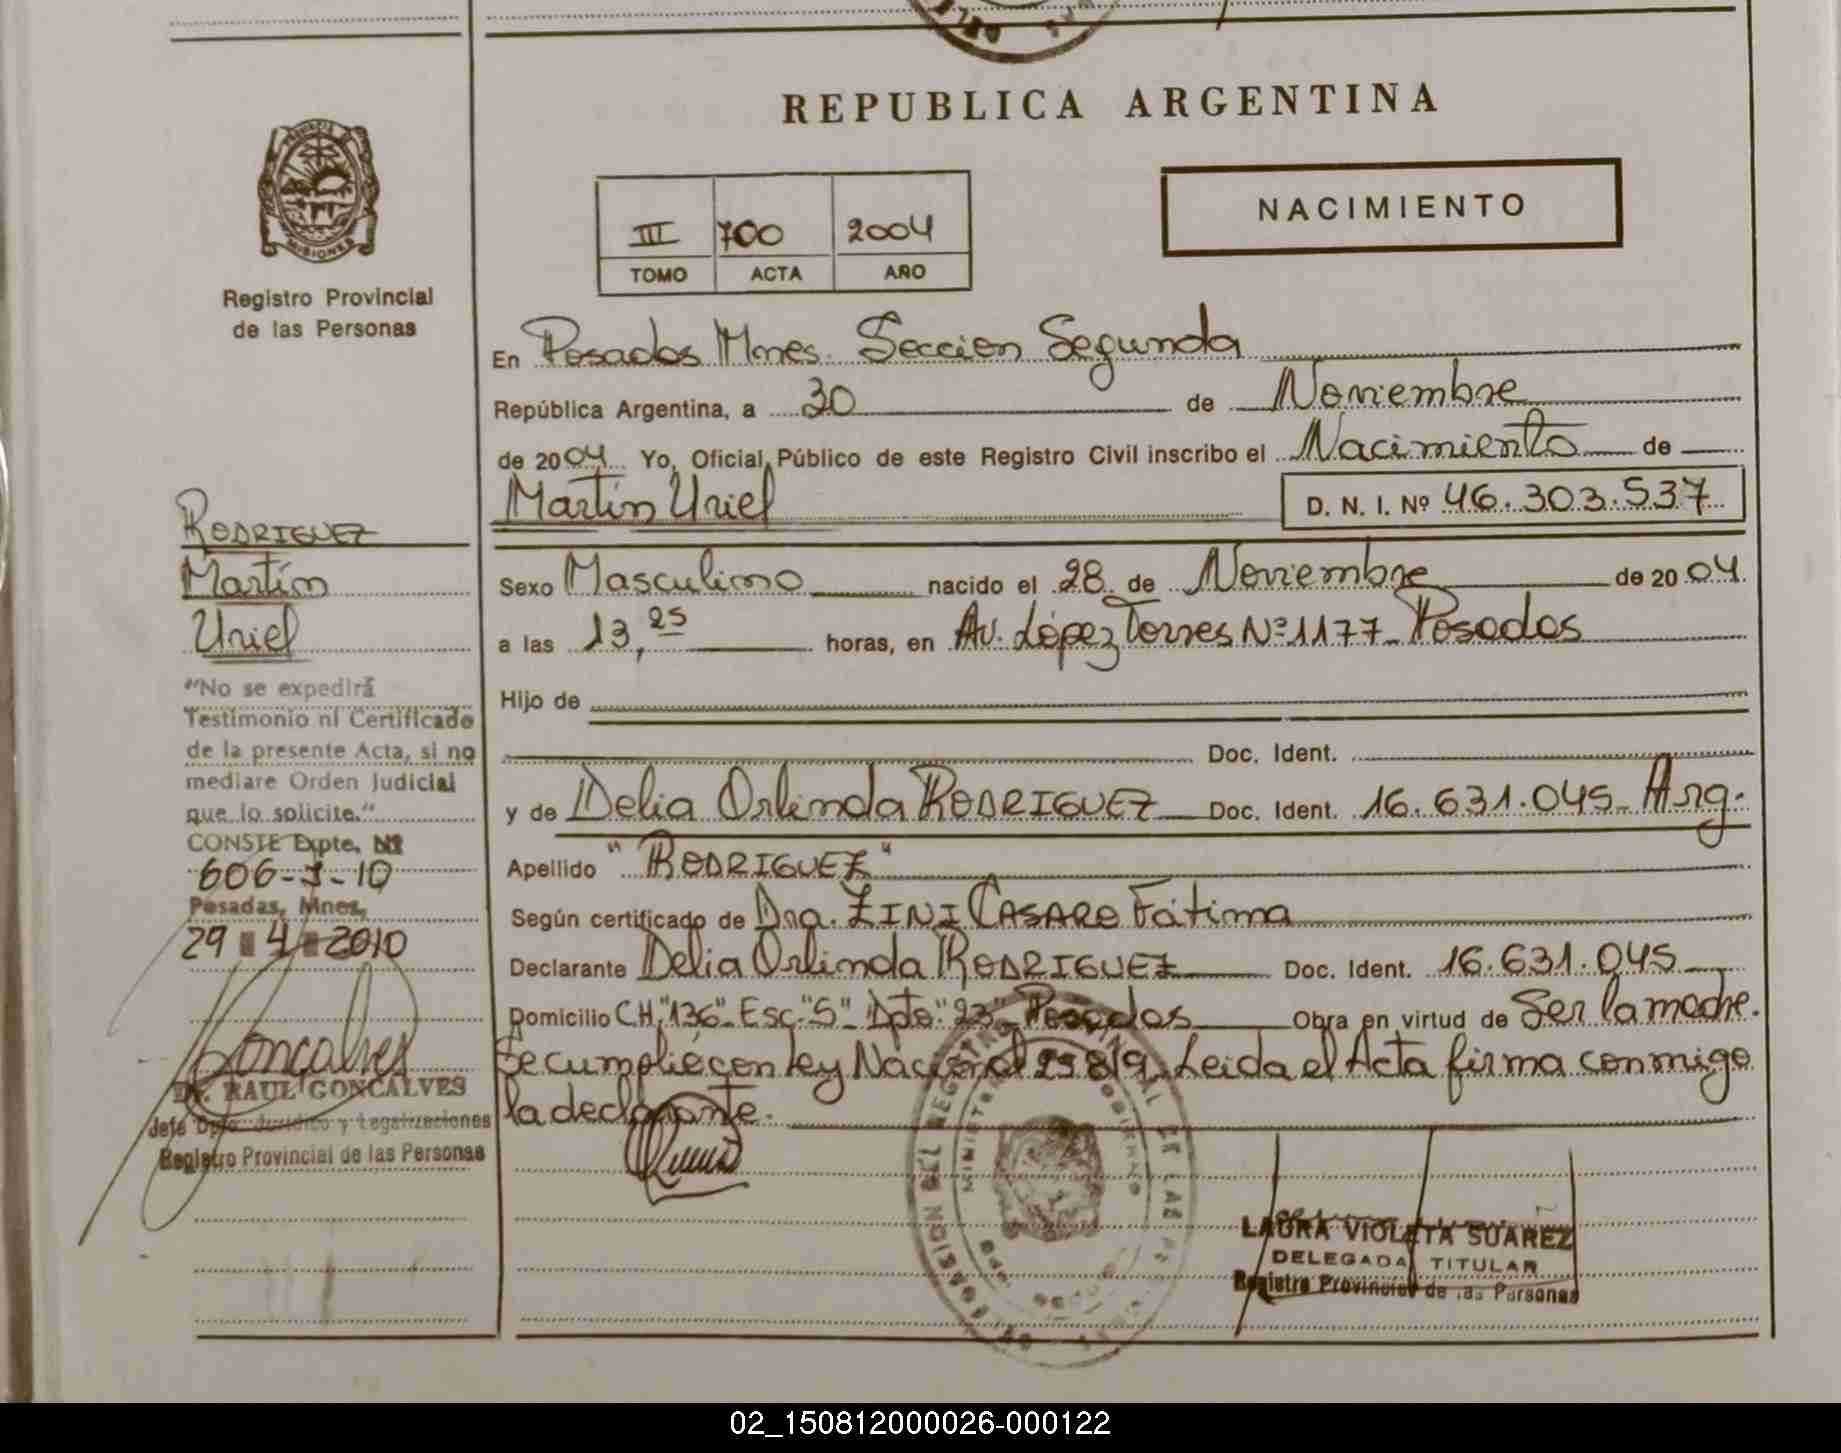 REPUBLICA ARGENTINA
NACIMIENTO
III 700 2004
TOMO ACTA AÑO
MISIONES
Registro Provincial
de las Personas
En Posadas Mnes. Sección Segunda
República Argentina, a 30 de Noviembre
de 2004 Yo, Oficial Público de este Registro Civil inscribo el Nacimiento de
Martín Uriel D. N. I. Nº 46.303.537
Sexo Masculino nacido el 28 de Noviembre de 2004
a las 13,25 horas, en Av. López Torres Nº 1177 Posadas
Hijo de
Doc. Ident.
y de Delia Orlinda RODRIGUEZ Doc. Ident. 16.631.045 Arg.
Apellido "RODRIGUEZ"
Según certificado de Dra. ZINI CASARO Fátima
Declarante Delia Orlinda RODRIGUEZ Doc. Ident. 16.631.045
Domicilio CH."136" Esc."5" Dpto."23" Posadas Obra en virtud de Ser la madre.
Se cumplió con Ley Nacional Leida el Acta firma conmigo
la declarante.
LAURA VIOLETA SUAREZ
DELEGADA TITULAR
Registro Provincial de las Personas
RODRIGUEZ
Martín
Uriel
"No se expedirá
Testimonio ni Certificado
de la presente Acta, si no
mediare Orden Judicial
que lo solicite."
CONSTE Expte. Nº
606-J-10
Posadas, Mnes,
29 4 2010
Goncalves
Dr. RAUL GONCALVES
Jefe Dpto. Jurídico y Legalizaciones
Registro Provincial de las Personas
02_150812000026-000122